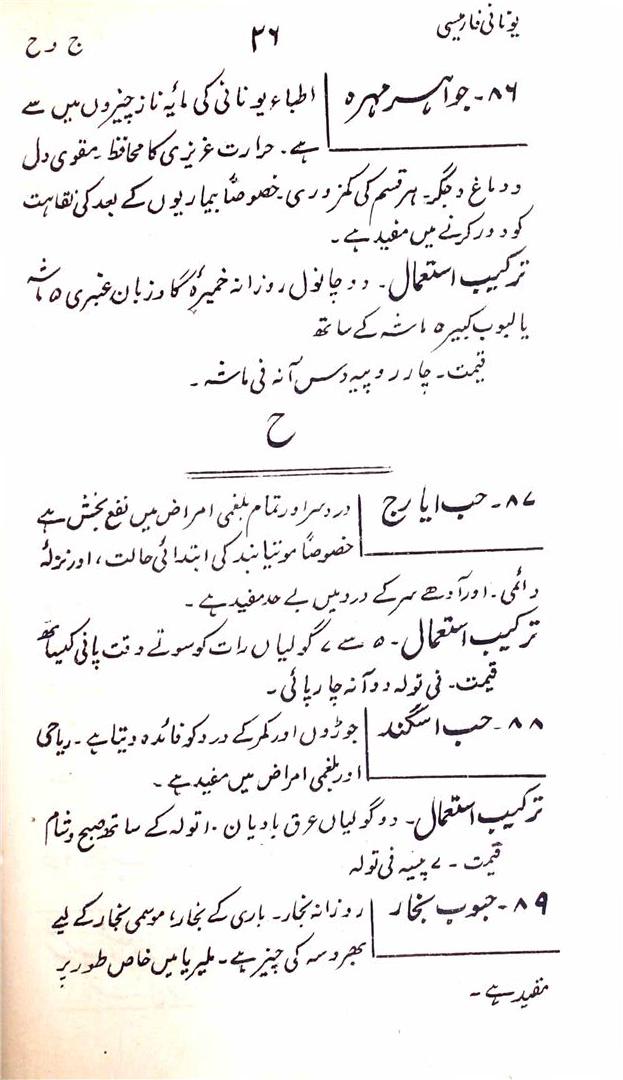 یونانی فارمیسی
۳۶
ج و ح
۸۶۔ جواہر مہرہ
اطباء یونانی کی مایۂ ناز چیزوں میں سے
ہے۔ حرارت غریزی کا محافظ۔ مقوی دل
و دماغ و جگر۔ ہر قسم کی کمزوری۔ خصوصاً بیماریوں کے بعد کی نقاہت
کو دور کرنے میں مفید ہے۔
ترکیب استعمال۔ دو چانول روزانہ خمیرۂ گاوزبان عنبری ۵ ماشہ
یا لبوب کبیر ۵ ماشہ کے ساتھ
قیمت۔ چار روپیہ دس آنہ فی ماشہ۔
ح
۸۷۔ حب ایارج
درد سر اور تمام بلغمی امراض میں نفع بخش ہے
خصوصاً موتیا بند کی ابتدائی حالت، اور نزلۂ
دائمی۔ اور آدھے سر کے درد میں بے حد مفید ہے۔
ترکیب استعمال۔ ۵ سے ۷ گولیاں رات کو سوتے وقت پانی کیساتھ
قیمت۔ فی تولہ دو آنہ چار پائی۔
۸۸۔ حب اسگند
جوڑوں اور کمر کے درد کو فائدہ دیتا ہے۔ ریاحی
اور بلغمی امراض میں مفید ہے۔
ترکیب استعمال۔ دو گولیاں عرق بادیان ۱۰ تولہ کے ساتھ صبح و شام
قیمت۔ ۷ پیسہ فی تولہ
۸۹۔ حبوب بخار
روزانہ بخار۔ باری کے بخار، موسمی بخار کے لیے
بھروسہ کی چیز ہے۔ ملیریا میں خاص طور پر
مفید ہے۔